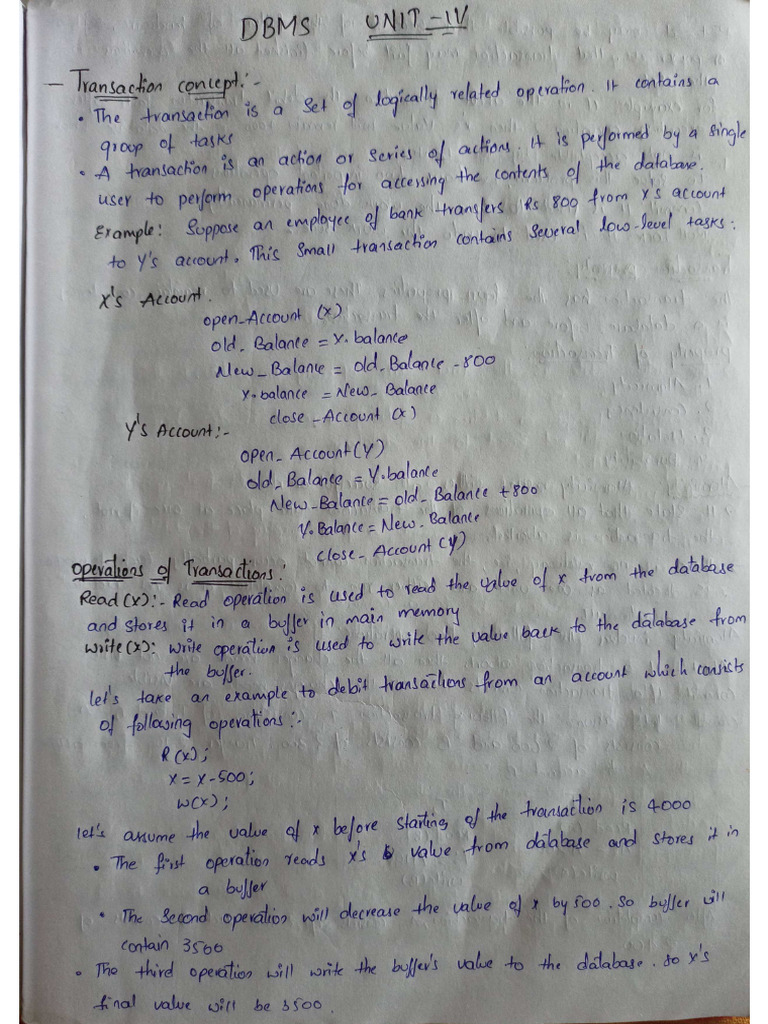 DBMS UNIT-IV
- Transaction concept:-
• The transaction is a set of logically related operation. It contains a
group of tasks
• A transaction is an action or series of actions. It is performed by a single
user to perform operations for accessing the contents of the database.
Example: Suppose an employee of bank transfers Rs 800 from x's account
to Y's account. This small transaction contains several low-level tasks:
X's Account.
open_Account (x)
old_Balance = x.balance
New_Balance = old_Balance -800
x.balance = New_Balance
close_Account (x)
Y's Account:-
open_Account(Y)
old_Balance = Y.balance
New_Balance = old_Balance +800
Y.Balance = New_Balance
close_Account (Y)
Operations of Transactions:
Read(x):- Read operation is used to read the value of x from the database
and stores it in a buffer in main memory
write(x): write operation is used to write the value back to the database from
the buffer.
let's take an example to debit transactions from an account which consists
of following operations:-
R(x);
x = x-500;
w(x);
let's assume the value of x before starting of the transaction is 4000
• The first operation reads x's value from database and stores it in
a buffer
• The second operation will decrease the value of x by 500. so buffer will
contain 3500
• The third operation will write the buffer's value to the database. so x's
final value will be 3500.